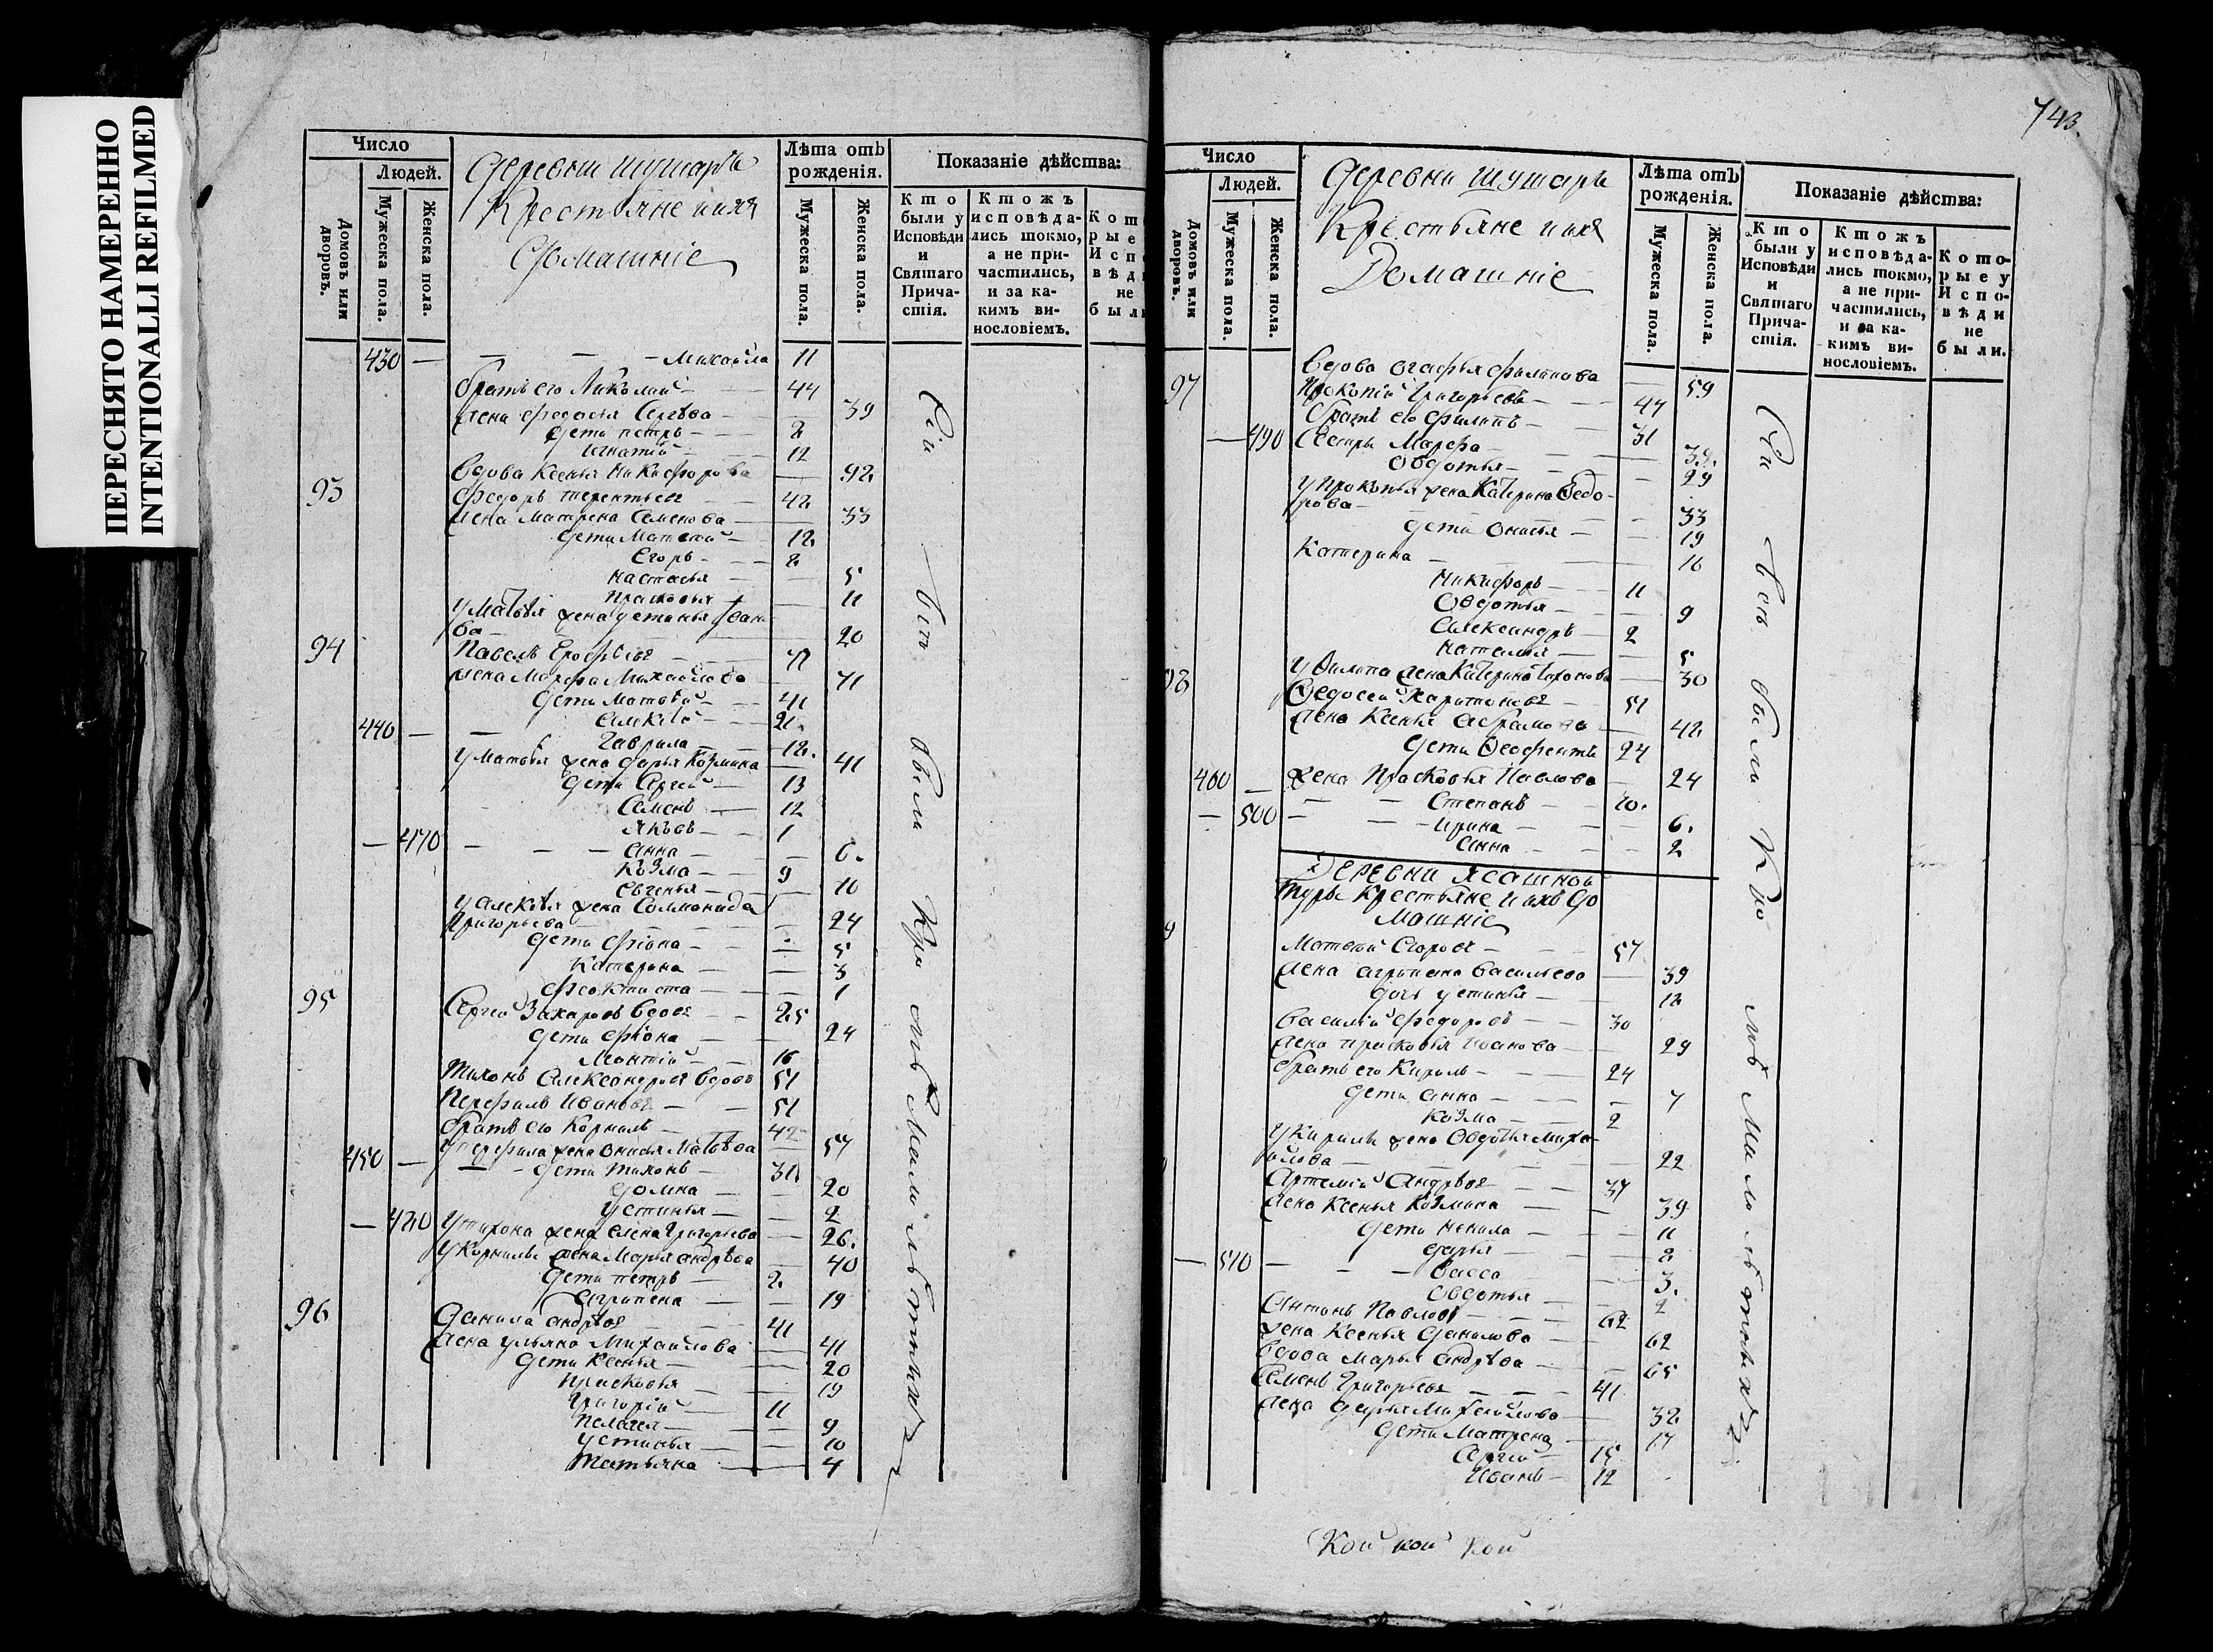 ПЕРЕСНЯТО НАМЕРЕННО
INTENTIONALLI REFILMED
Число
Людей.
Домовъ или дворовъ.
Мужеска пола.
Женска пола.
Деревни Шушаръ
Крестьяне и ихъ
Домашніе
Лѣта отъ рожденія.
Мужеска пола.
Женска пола.
Показаніе дѣйства:
Кто были у Исповѣди и Святаго Причастія.
Ктожъ исповѣдались токмо, а не причастились, и за какимъ винословіемъ.
430 — Михайла 11
братъ его Николай 44
жена Федосья Сергѣва 39
дети петръ 8
Игнатій 12
вдова Ксенья Никифорова 92
93 Федоръ терентьевъ 42
жена Матрена Семенова 33
дети Матвей 12
Егоръ 8
настасья 5
Прасковья 11
у Матвѣя жена устинья Иванова 20
94 Павелъ Ерофѣевъ 71
жена Марфа Михайлова 71
дети Матвѣй 41
Алексѣй 21
440 — Гаврила 12
у Матвѣя жена дарья Козмина 41
дети Сергей 13
Семенъ 12
Яковъ 1
— 470 Анна 6
Козма 9
Евгенья 10
у Алексѣя жена Соломонида
Григорьева 24
дети Фіона 5
Катерина 3
Феоктиста 1
95 Сергей Захаровъ вдовъ 25
дети Фіона 24
Леонтій 16
Тихонъ Александровъ вдовъ 51
Перфилъ Ивановъ 51
братъ его Корнилъ 42
у перфила жена Онисья Матвѣва 57
450 — дети тихонъ 31
домна 20
Устинья 2
— 480 у тихона жена елена Григорьева 26
у Корнилы жена Марья Андрѣва 40
дети петръ 2
Агрипена 19
96 Данила Андрѣевъ 41
жена ульяна Михайлова 41
дети Ксенья 20
Прасковья 19
Григорій 11
Пелагея 9
Устинья 10
Татьяна 4
Сіи
вси
были
743.
Число
Людей.
Домовъ или дворовъ.
Мужеска пола.
Женска пола.
Деревни Шушаръ
Крестьяне и ихъ
Домашніе
Лѣта отъ рожденія.
Мужеска пола.
Женска пола.
Показаніе дѣйства:
Кто были у Исповѣди и Святаго Причастія.
Ктожъ исповѣдались токмо, а не причастились, и за какимъ винословіемъ.
Которые у Исповѣди не были.
вдова Агафья Филипова 59
97 Прокопій Григорьевъ 47
братъ его Филипъ 31
— 490 Сестры Марфа 34
Овдотья 29
у Прокопья жена Катерина Ѳедо-
рова 33
дети Онисья 19
Катерина 16
Никифоръ 11
Овдотья 9
Александръ 2
Наталья 5
у Филипа жена Катерина 30
98 Ѳедосей Харитоновъ 51
жена Ксенья Абрамова 42
дети Ѳеофентъ 24
460 — жена Прасковья Павлова 24
Степанъ 10
— 500 Ирина 6
Анна 2
Деревни Ясашной
туры Крестьяне и ихъ до
машніе
Матвей Егоровъ 57
жена Агрипена Васильева 39
дочь устинья 12
Василій Федоровъ 30
жена прасковья Иванова 29
братъ его Кирилъ 24
дети Анна 7
Козма 2
у Кирилы жена Овдотья Миха-
йлова 22
Артемій Андрѣевъ 37
жена Ксенья Козмина 39
дети Ненила 11
дарья 8
— 510 Васса 3
Овдотья 2
Антонъ Павловъ 62
жена Ксенья Данилова 62
вдова Марья Андрѣва 65
Семенъ Григорьевъ 41
жена дарья Михайлова 32
дети Матрена 17
Сергей 15
Иванъ 12
Сіи
вси
были
Кои кои кои